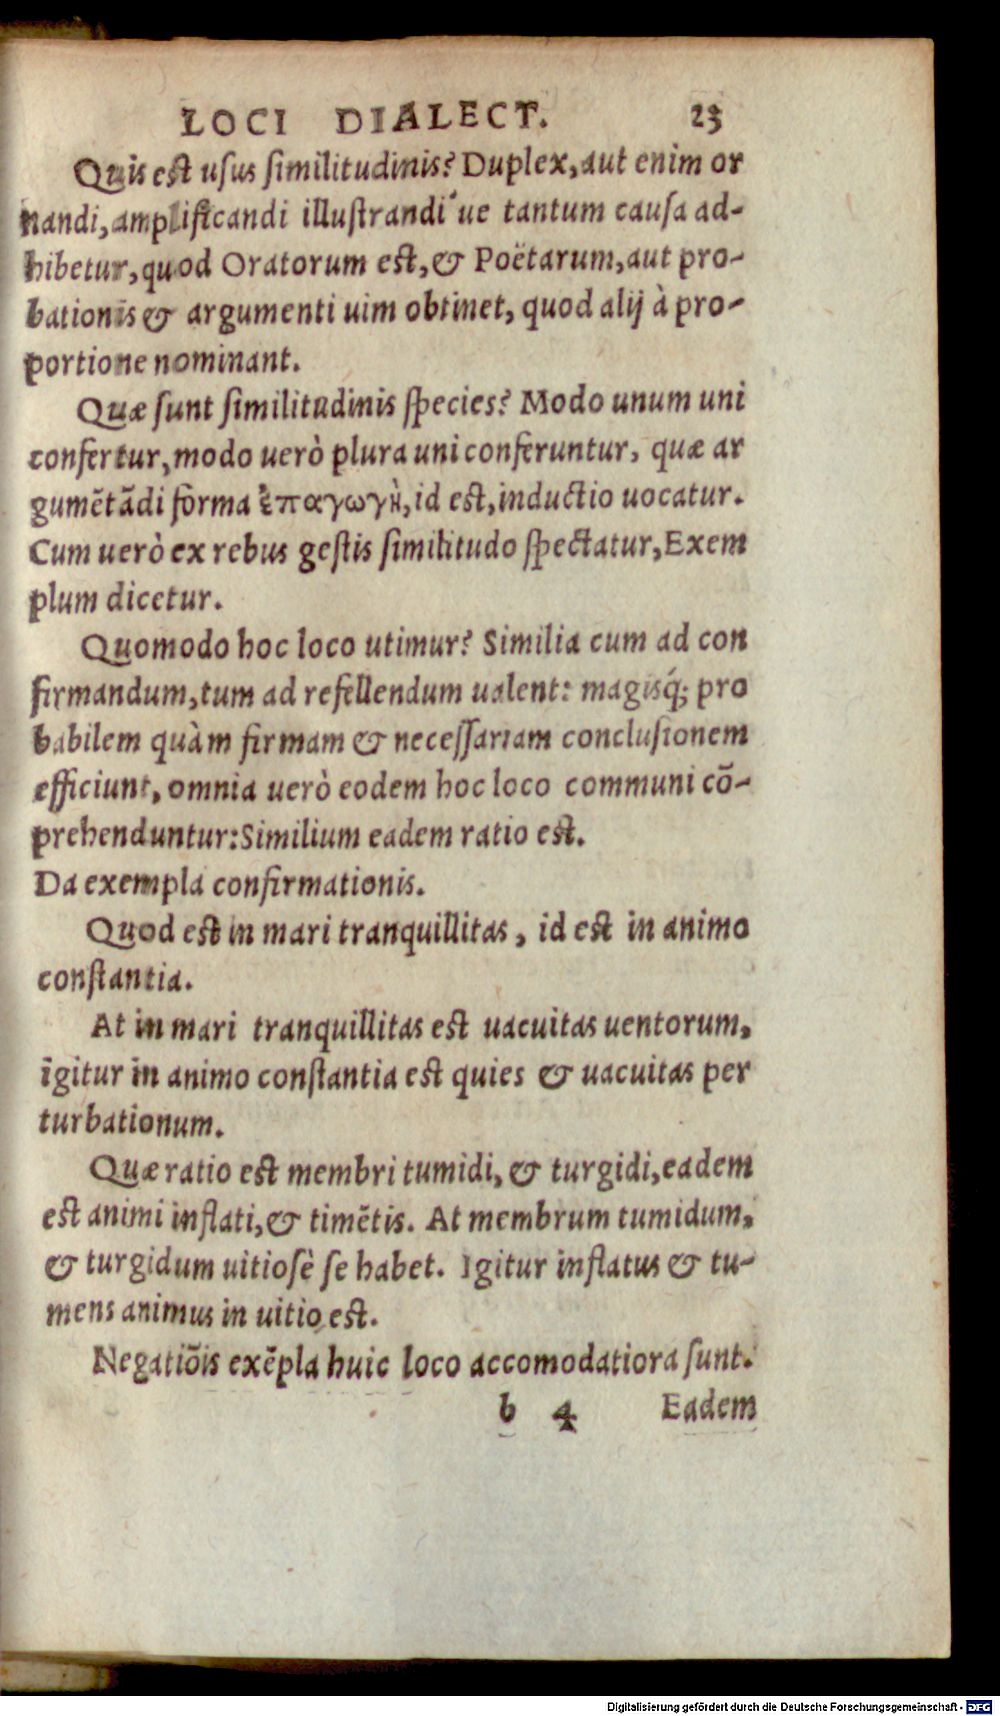 LOCI DIALECT. 23
Quis est usus similitudinis? Duplex, aut enim or
nandi, amplificandi illustrandi'ue tantum causa ad-
hibetur, quod Oratorum est, & Poëtarum, aut pro-
bationis & argumenti uim obtinet, quod alij à pro-
portione nominant.
Quæ sunt similitudinis species? Modo unum uni
confertur, modo uerò plura uni conferuntur, quæ ar
gumẽtãdi forma ἐπαγωγὴ, id est, inductio uocatur.
Cum uerò ex rebus gestis similitudo spectatur, Exem
plum dicetur.
Quomodo hoc loco utimur? Similia cum ad con
firmandum, tum ad refellendum ualent: magisq́; pro
babilem quàm firmam & necessariam conclusionem
efficiunt, omnia uerò eodem hoc loco communi cõ-
prehenduntur: Similium eadem ratio est.
Da exempla confirmationis.
Quod est in mari tranquillitas, id est in animo
constantia.
At in mari tranquillitas est uacuitas uentorum,
igitur in animo constantia est quies & uacuitas per
turbationum.
Quæ ratio est membri tumidi, & turgidi, eadem
est animi inflati, & timẽtis. At membrum tumidum,
& turgidum uitiosè se habet. Igitur inflatus & tu-
mens animus in uitio est.
Negatiõis exẽpla huic loco accomodatiora sunt.
b 4 Eadem
Digitalisierung gefördert durch die Deutsche Forschungsgemeinschaft - DFG